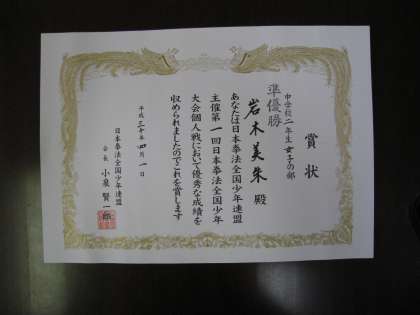 賞状
中学校二年生女子の部
準優勝
岩木美朱 殿
あなたは日本拳法全国少年連盟
主催第一回日本拳法全国少年
大会個人戦において優秀な成績を
収められましたのでこれを賞します
平成三十年四月一日
日本拳法全国少年連盟
会長 小泉賢一郎